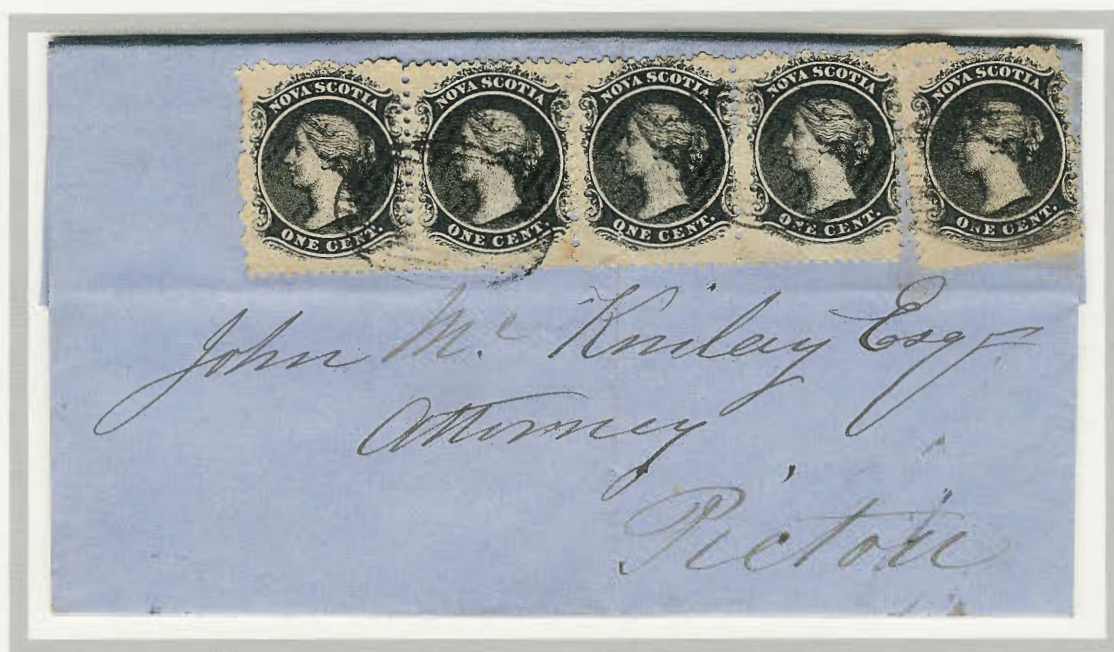 NOVA SCOTIA ONE CENT.
NOVA SCOTIA ONE CENT.
NOVA SCOTIA ONE CENT.
NOVA SCOTIA ONE CENT.
NOVA SCOTIA ONE CENT.
John Mc. Kinlay Esqr
Attorney
Pictou